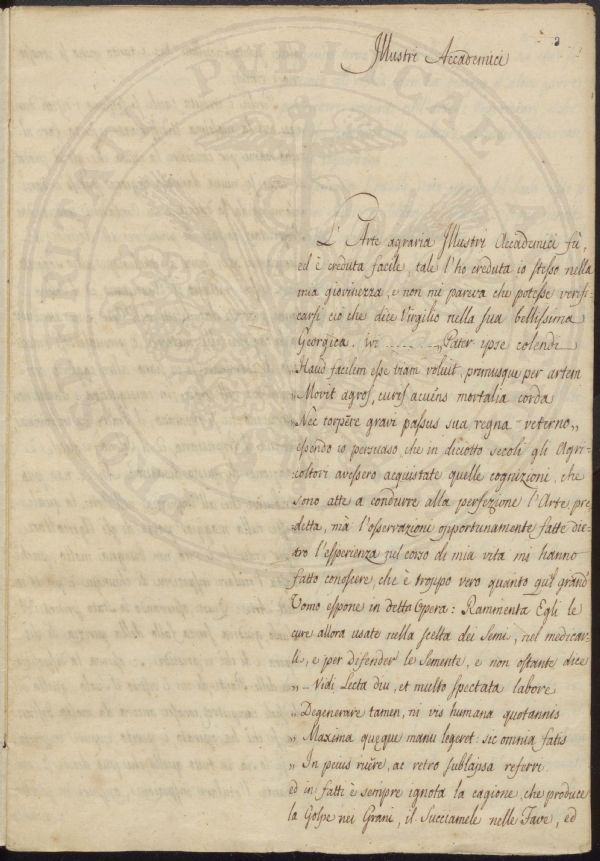 3
Illustri Accademici
L'Arte agraria Illustri Accademici fù,
ed è creduta facile, tale l'ho creduta io stesso nella
mia giovinezza, e non mi pareva che potesse verifi:
carsi ciò che dice Virgilio nella sua bellissima
Georgica. iv: ......... „Pater ipse colendi
„Haud facilem esse viam voluit, primusque per artem
„Movit agros, curis acuens mortalia corda
„Nec torpēre gravi passus sua regna veterno„
essendo io persuaso, che in diciotto secoli gli Agri:
coltori avessero acquistate quelle cognizioni, che
sono atte a condurre alla perfezione l'Arte pre:
detta, mà l'osservazioni opportunamente fatte die:
tro l'esperienza nel corso di mia vita mi hanno
fatto conoscere, che è troppo vero quanto quel grand'
Uomo espone in detta Opera: Rammenta Egli le
cure allora usate nella scelta dei Semi, nel medicar:
li, e per difender le Semente, e non ostante dice
„... Vidi Lecta diu, et multo spectata labore
„Degenerare tamen, ni vis humana quotannis
„Maxima quęque manu legeret: sic omnia fatis
„In peius ruĕre, ac retro sublapsa referri.
ed in fatti è sempre ignota la cagione, che produce
la Golpe nei Grani, il Succiamele nelle Fave, ed